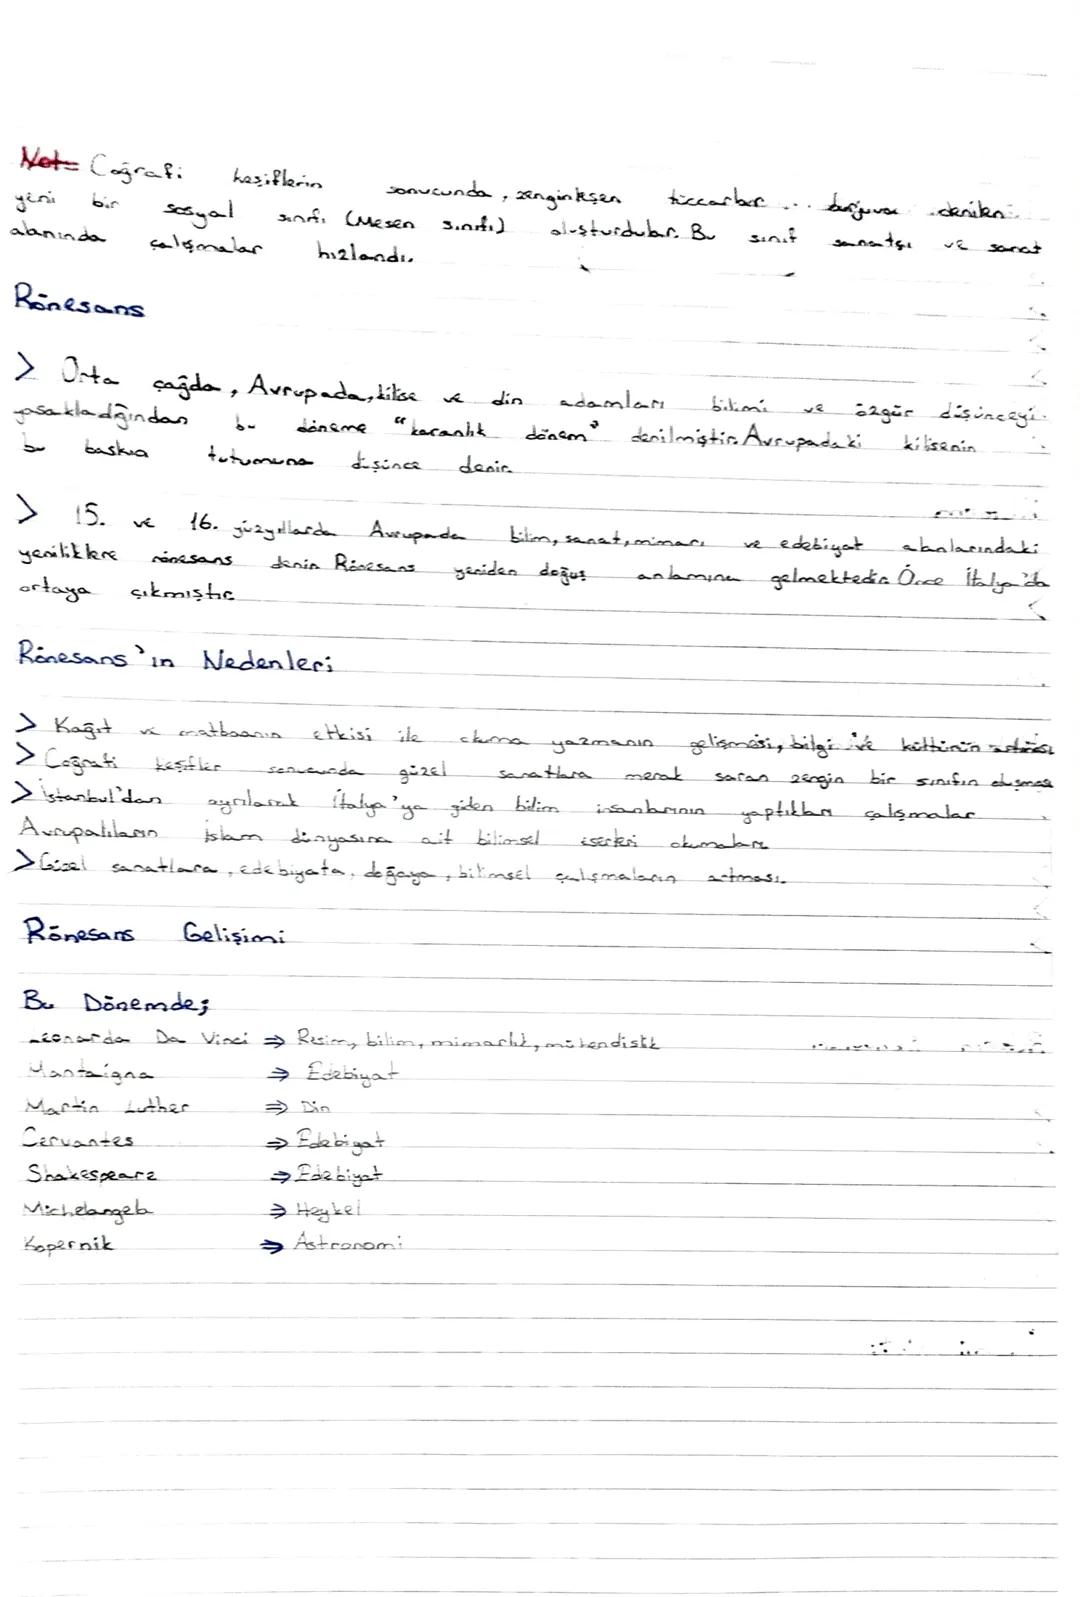 Not= Coğrafi keşiflerin sonucunda, zenginleşen tüccarlar burjuva denilen
yeni bir sosyal sınıfı (Mesen sınıfı) oluşturdular. Bu sınıf sanatçı ve sanat
alanında çalışmalar hızlandı.
Rönesans
> Orta çağda, Avrupada, kilise ve din adamları bilimi ve özgür düşünceyi
yasakladığından bu döneme "karanlık dönem" denilmiştir. Avrupadaki kilisenin
bu baskıcı tutumuna düşünce denir.
> 15. ve 16. yüzyıllarda Avrupada bilim, sanat, mimari ve edebiyat alanlarındaki
yeniliklere rönesans denir. Rönesans yeniden doğuş anlamına gelmektedir. Önce İtalya'da
ortaya çıkmıştır.
Rönesans'ın Nedenleri
> Kağıt ve matbaanın etkisi ile okuma yazmanın gelişmesi, bilgi ve kültürün artması
> Coğrafi keşifler sonucunda güzel sanatlara merak saran zengin bir sınıfın oluşması
> İstanbul'dan ayrılarak İtalya'ya giden bilim insanlarının yaptıkları çalışmalar
Avrupalıların İslam dünyasına ait bilimsel eserleri okumaları
> Güzel sanatlara, edebiyata, doğaya, bilimsel çalışmaların artması.
Rönesans Gelişimi
Bu Dönemde;
Leonarda Da Vinci ⇒ Resim, bilim, mimarlık, mühendislik
Mantaigna ⇒ Edebiyat
Martin Luther ⇒ Din
Cervantes ⇒ Edebiyat
Shakespeare ⇒ Edebiyat
Michelangelo ⇒ Heykel
Kopernik ⇒ Astronomi